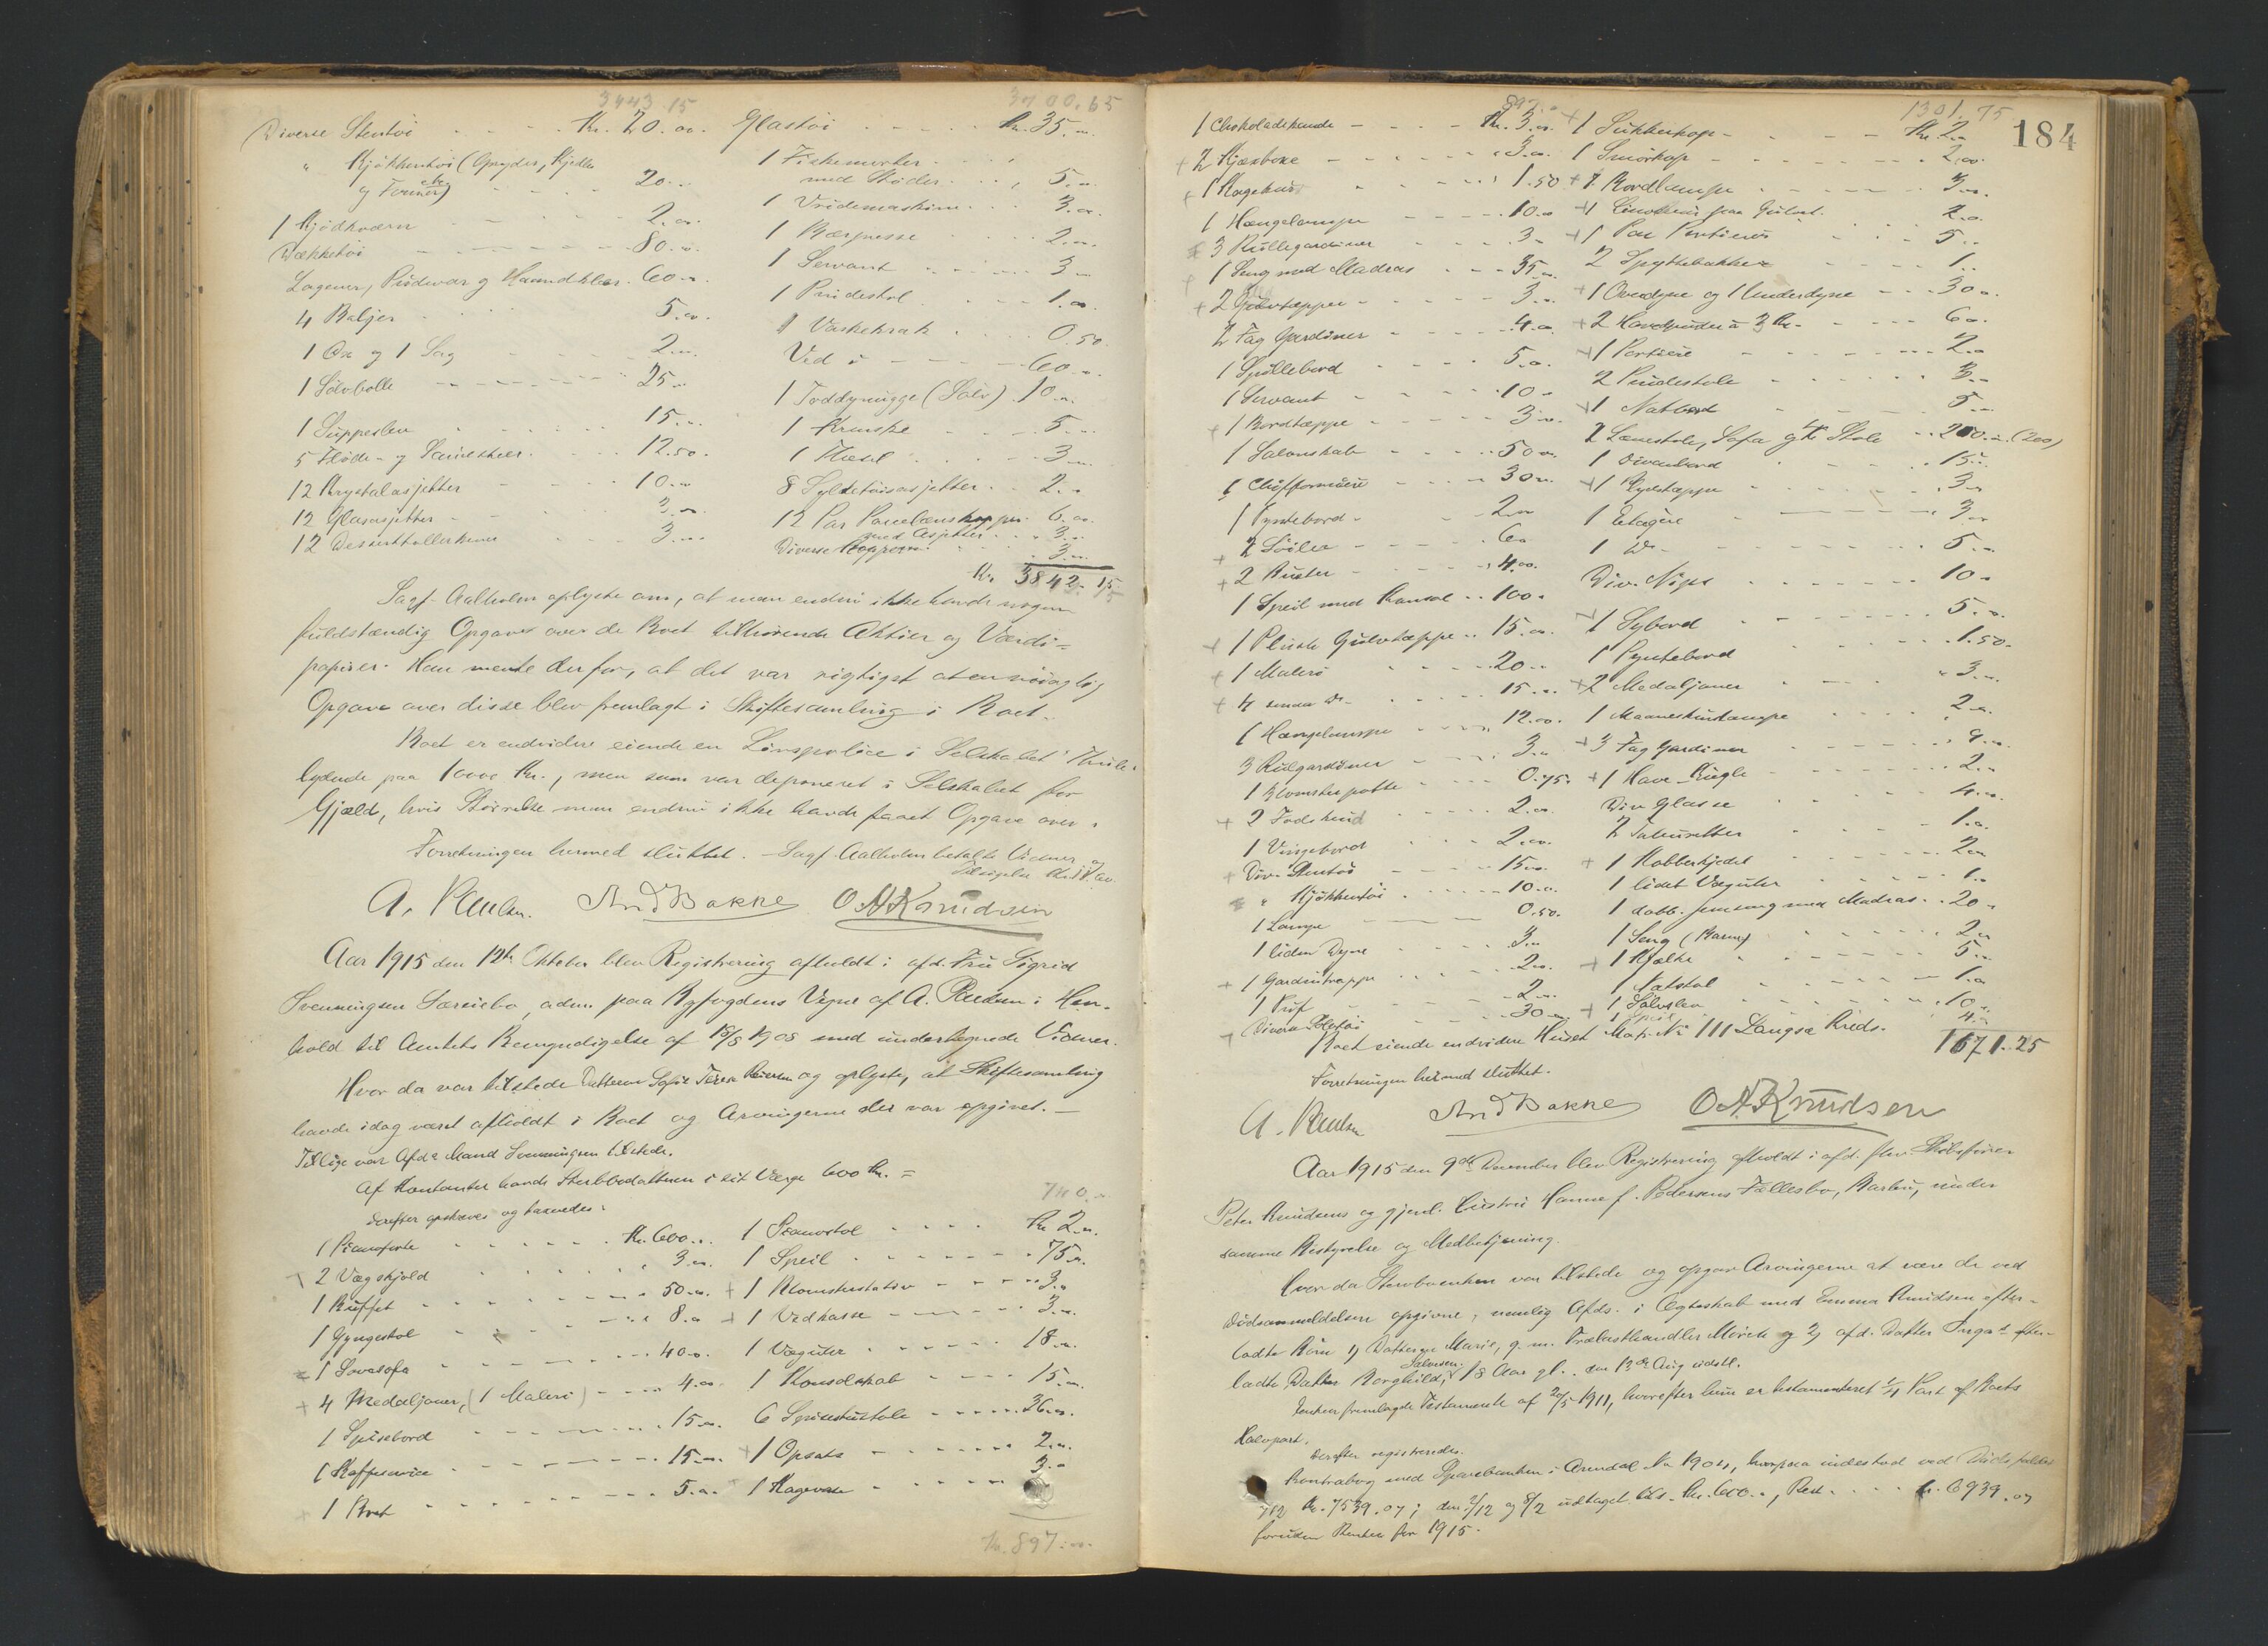 3443.15
Diverse Stentöi - - - - Kr. 20.00.
" Kjökkentöi (Gryder, Kjedler
og Former etc) - - - 20.-
1 Kjödkværn - - - 2.00.
Dækketöi - - - - 80.-
Lagener, Pudevar og Haandklær. 60.-
4 Baljer - - - 5.00.
1 Öx og 1 Sag - - - 2.-
1 Sölvbolle - - - 25.-
1 Suppeslev - - - 15.-
5 Flöde- og Sauceskeer - - 12.50.
12 Krystalasjetter - - - 10.-
12 Glasasjetter - - - 3.-
12 Dessertkollerkener - - - 3.-
3700.65
Glastöi - - - - Kr. 35.-
1 Fiskemorter - - -
med Stöder - - - 5.-
1 Vridemaskine - - - 3.-
1 Bærpresse - - - 2.-
1 Servant - - - 3.-
1 Pindestol - - - 1.00
1 Vaskekrak - - - 0.50.
Ved i - - - 60.-
1 Toddymugge (Sölv) 10.-
1 Krukke - - - 5.-
1 Fladsel - - - 3.-
8 Syltetöisasjetter - - 2.-
12 Par Porcelænskopper 6.00.
med Asjetter - - 3.-
Diverse Kopper - - - 3.-
Kr. 3842.15
Sagf. Aalholm oplyste om, at man endnu ikke havde nogen
fuldstændig Opgave over de Boet tilhörende Aktier og Værdi=
papirer. Han mente derfor, at det var rigtigst at en nöiagtig
Opgave over disse blev fremlagt i Skiftesamling i Boet.
Boet er endvidere eiende en Livspolice i Selskabet "Thule"
lydende paa 10000 Kr., men som var deponeret i Selskabet for
Gjæld, hvis Störrelse man endnu ikke havde faaet Opgave over.
Forretningen hermed sluttet. - Sagf. Aalholm betalte Vidner
A. Paulsen. And Bakke O A Knudsen
Aar 1915 den 12te Oktober blev Registrering afholdt i afd. Fru Sigrid
Svenningsen Særeiebo, adm. paa Byfogdens Vegne af A. Paulsen i Hen-
hold til Amtets Bemyndigelse af 15/8 1908 med undertegnede Vidner.
Hvor da var tilstede Datteren og oplyste, at Skiftesamling
havde idag været afholdt i Boet og Arvingerne der var opgivet. -
Tillige var Afd.s Mand Svenningsen tilstede.
Af Kontanter havde Sterbbodatteren i sit Værge 600 Kr. =
Derefter opskreves og taxeredes:
1 Pianoforte - - - Kr. 600.-
2 Vægskjold - - - 3.-
1 Buffet - - - 50.-
1 Gyngestol - - - 8.-
1 Sovesofa - - - 40.-
4 Medaljoner, (1 Maleri) - - - 4.-
1 Spisebord - - - 15.-
1 Kaffeservice - - - 15.-
1 Bret - - - 5.-
740.-
1 Pianostol - - - Kr. 2.-
1 Speil - - - 75.-
1 Blomsterstativ - - - 3.-
1 Vedkasse - - - 3.-
1 Væguhr - - - 18.-
1 Konsolskab - - - 15.-
6 Spisestustole - - - 36.-
1 Opsats - - - 2.-
1 Kagevase - - - 3.-
Kr. 897.-
184
897.-
1 Chokoladekande - - - Kr. 3.-
2 Kjæxboxe - - - 3.-
1 Kagekurv - - - 1.50
1 Hængelampe - - - 10.-
3 Rullegardiner - - - 3.-
1 Seng med Madras - - - 35.-
2 Gulvtæpper - - - 3.-
2 Fag Gardiner - - - 4.-
1 Spillebord - - - 5.-
1 Servant - - - 10.-
1 Bordtæppe - - - 3.-
1 Salonskab - - - 50.-
1 Chiffoniere - - - 30.-
1 Pyntebord - - 2.-
2 Söiler - - - 6.-
2 Buster - - - 4.00.
1 Speil med Konsol - - 100.-
1 Plush Gulvtæppe - - 15.-
1 Maleri - - - 20.-
4 smaa do - - - 15.-
1 Hængelampe - - - 12.00.
3 Rulgardiner - - - 3.-
1 Blomsterpotte - - - 0.75.
2 Fodskind - - - 2.-
1 Vingebord - - - 2.00.
Div. Stentöi - - - 15.-
" Kjökkentöi - - - 10.-
1 Lampe - - - 0.50.
1 liden Dyne - - - 3.-
1 Gardintrappe - - - 2.-
1 Puf - - - 2.-
Diverse - - - 30.-
1301.75
1 Sukkerkop - - - Kr. 2.-
1 Smörkop - - - 2.00.
1 Bordlampe - - - 3.-
1 Linoleum paa Gulvet. 2.-
1 Par Portierer - - - 5.-
2 Spyttebakker - - - 1.-
1 Overdyne og 1 Underdyne - - - 30.-
2 Hovedpuder à 3 Kr. - - - 6.-
1 Portiere - - - 2.-
2 Pindestole - - - 3.-
1 Natbord - - - 5.-
2 Lænestole, Sofa og 4 Stole - - 200.- (200)
1 Divanbord - - - 15.-
1 Ryetæppe - - - 3.-
1 Etagere - - - 3.-
1 Do - - - 5.-
Div. Nips - - - 10.-
1 Sybord - - - 5.-
1 Pyntebord - - - 1.50.
2 Medaljoner - - - 3.-
1 Maaneskinslampe - - - 2.-
3 Fag Gardiner - - - 9.-
1 Have-Kugle - - - 2.-
Div Glasse - - - 4.-
2 Tabouretter - - - 1.-
1 Kobberkjedel - - - 2.-
1 lidet Væguhr - - - 1.-
1 dobb. Jernseng med Madras - - 20.-
1 Seng (Barne) - - - 2.-
1 Kjælke - - - 5.-
1 Natstol - - - 1.-
1 Sölvslev - - - 10.-
1 Speil 4.-
Boet eiende endvidere Huset Matr. No 111 Langsæ Kreds. 1671.25
Forretningen hermed sluttet.
A. Paulsen And Bakke O A Knudsen
Aar 1915 den 9de December blev Registrering afholdt i afd. fhv. Skibsförer
Peter Knudsens og gjenl. Hustru Hanne f. Pedersens Fællesbo, Barbu, under
samme Bestyrelse og Medbetjening.
Hvor da Sterboenken var tilstede og opgav Arvingerne at være de ved
Dödsanmeldelsen opgivne, nemlig Afds. i Ægteskab med Emma Knudsen efter-
ladte Börn 1) Datteren Marie, g. m. Trælasthandler Mörch og 2) afd. Datter Ingas efter-
ladte Datter Borghild Salvesen, 18 Aar gl. den 13de Aug. sidstl.
Enken fremlagde Testamente af 20/5 1911, hvorefter hun er testamenteret 1/4 Part af Boets
Halvpart.
Derefter registreredes.
Kontrabog med Sparebanken i Arendal No 1904, hvorpaa indestod ved Dödsfaldet
7/12 Kr. 7539.07; den 2/12 og 8/2 udtaget tils. Kr. 600.-, Rest - - - Kr. 6939.07
foruden Renter for 1915.